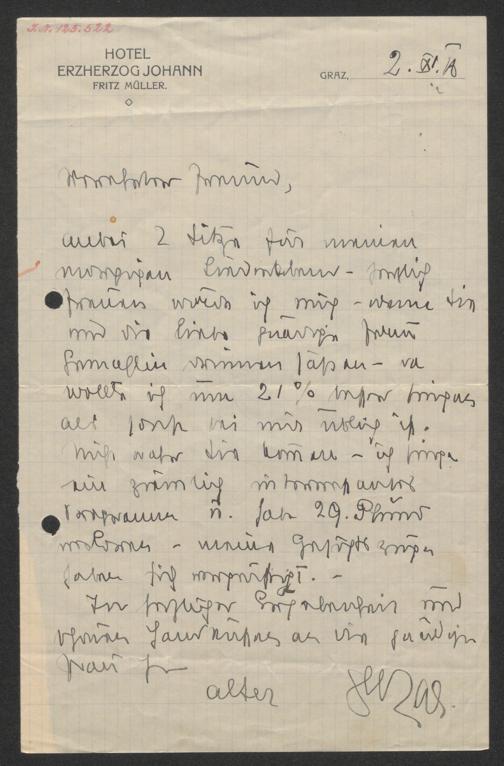 I.N. 125.522
HOTEL
ERZHERZOG JOHANN
FRITZ MÜLLER.
GRAZ, 2. XI. 18
Verehrter Freund,
anbei 2 Sitze für meinen
morgigen Liederabend – herzlich
freuen würde ich mich – wenn Sie
und die liebe gnädige Frau
Gemahlin drinnen säßen – da
wollte ich um 21% besser singen
als sonst bei mir üblich ist.
Also Sie kommen – ich singe
ein ziemlich interessantes
Programm u. habe 29. Pfund
verloren – meine Gesichtszüge
haben sich
In herzlicher Ergebenheit und
schönen Handküssen an die gnädige
Frau Ihr
alter